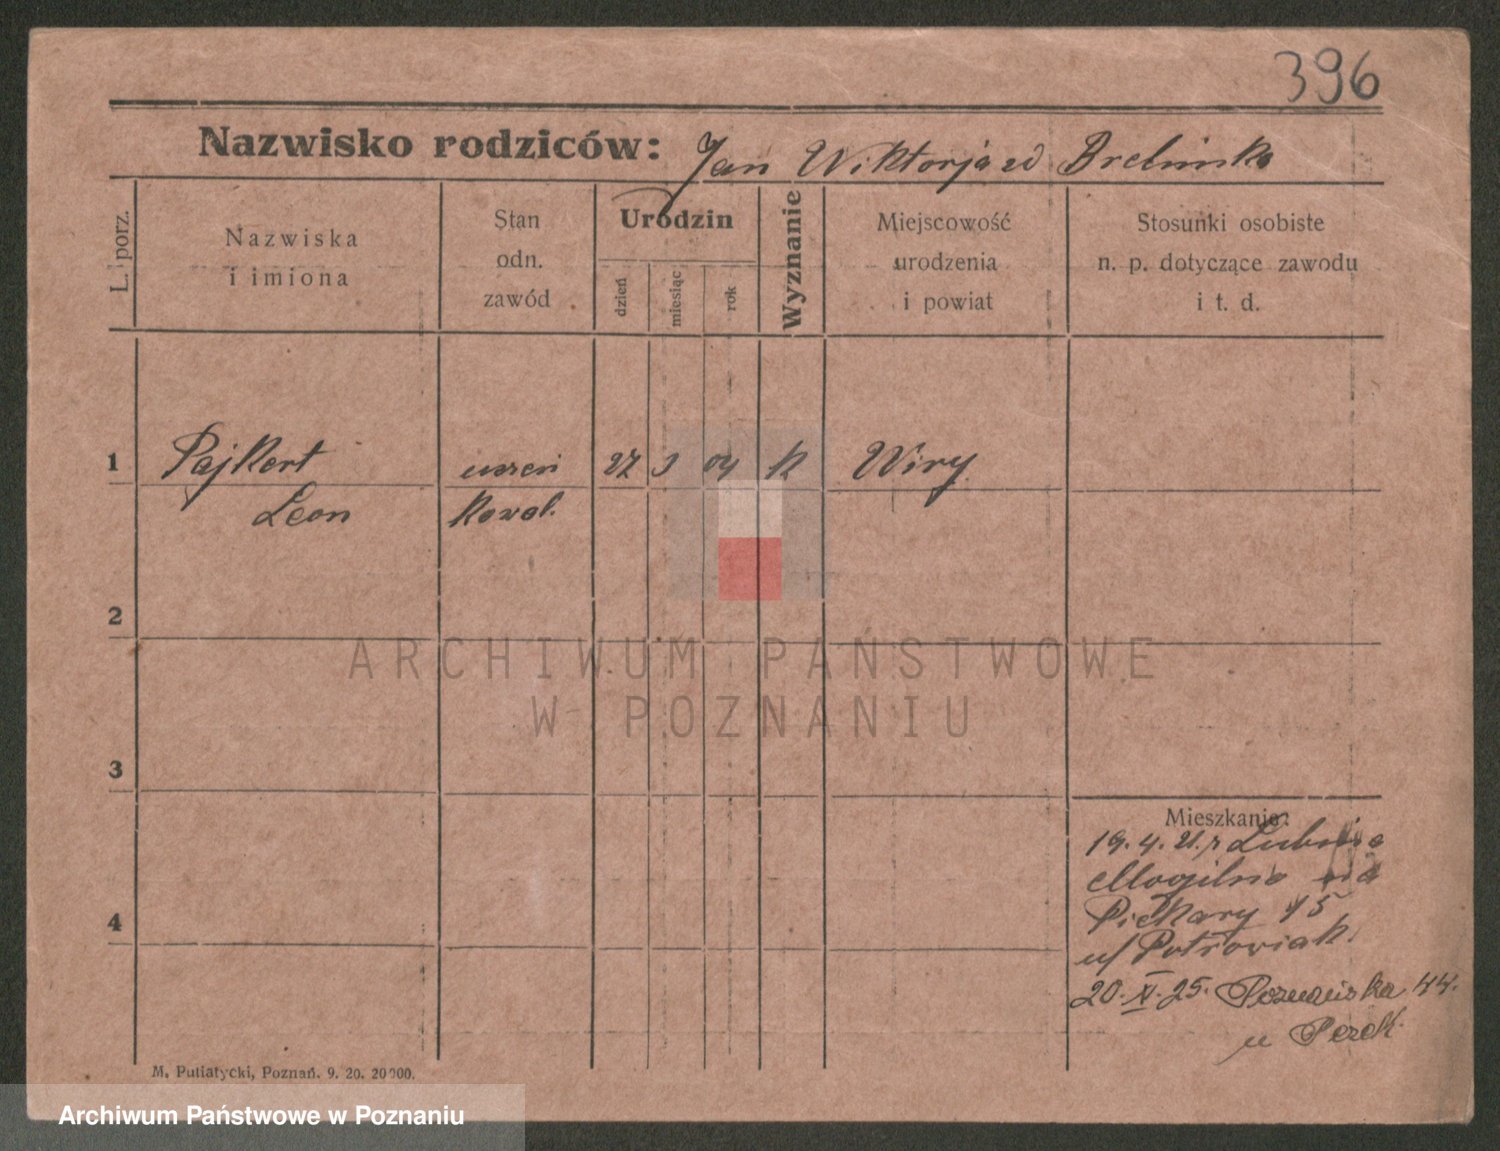 396
Nazwisko rodziców: Jan Wiktorja zd
L. porz.
Nazwiska
i imiona
Stan
odn.
zawód
Urodzin
dzień
miesiąc
rok
Wyznanie
Miejscowość
urodzenia
i powiat
Stosunki osobiste
n. p. dotyczące zawodu
i t. d.
1
Pajkert
Leon
uczeń
kowal.
27
3
04
k
Wiry
2
3
4
Mieszkanie:
19. 4. 21.
Mogilno
Piekary 15
u/
20. XI. 25. Poznańska 44.
u
M. Putiatycki, Poznań. 9. 20. 20000.
ARCHIWUM PAŃSTWOWE
W POZNANIU
Archiwum Państwowe w Poznaniu